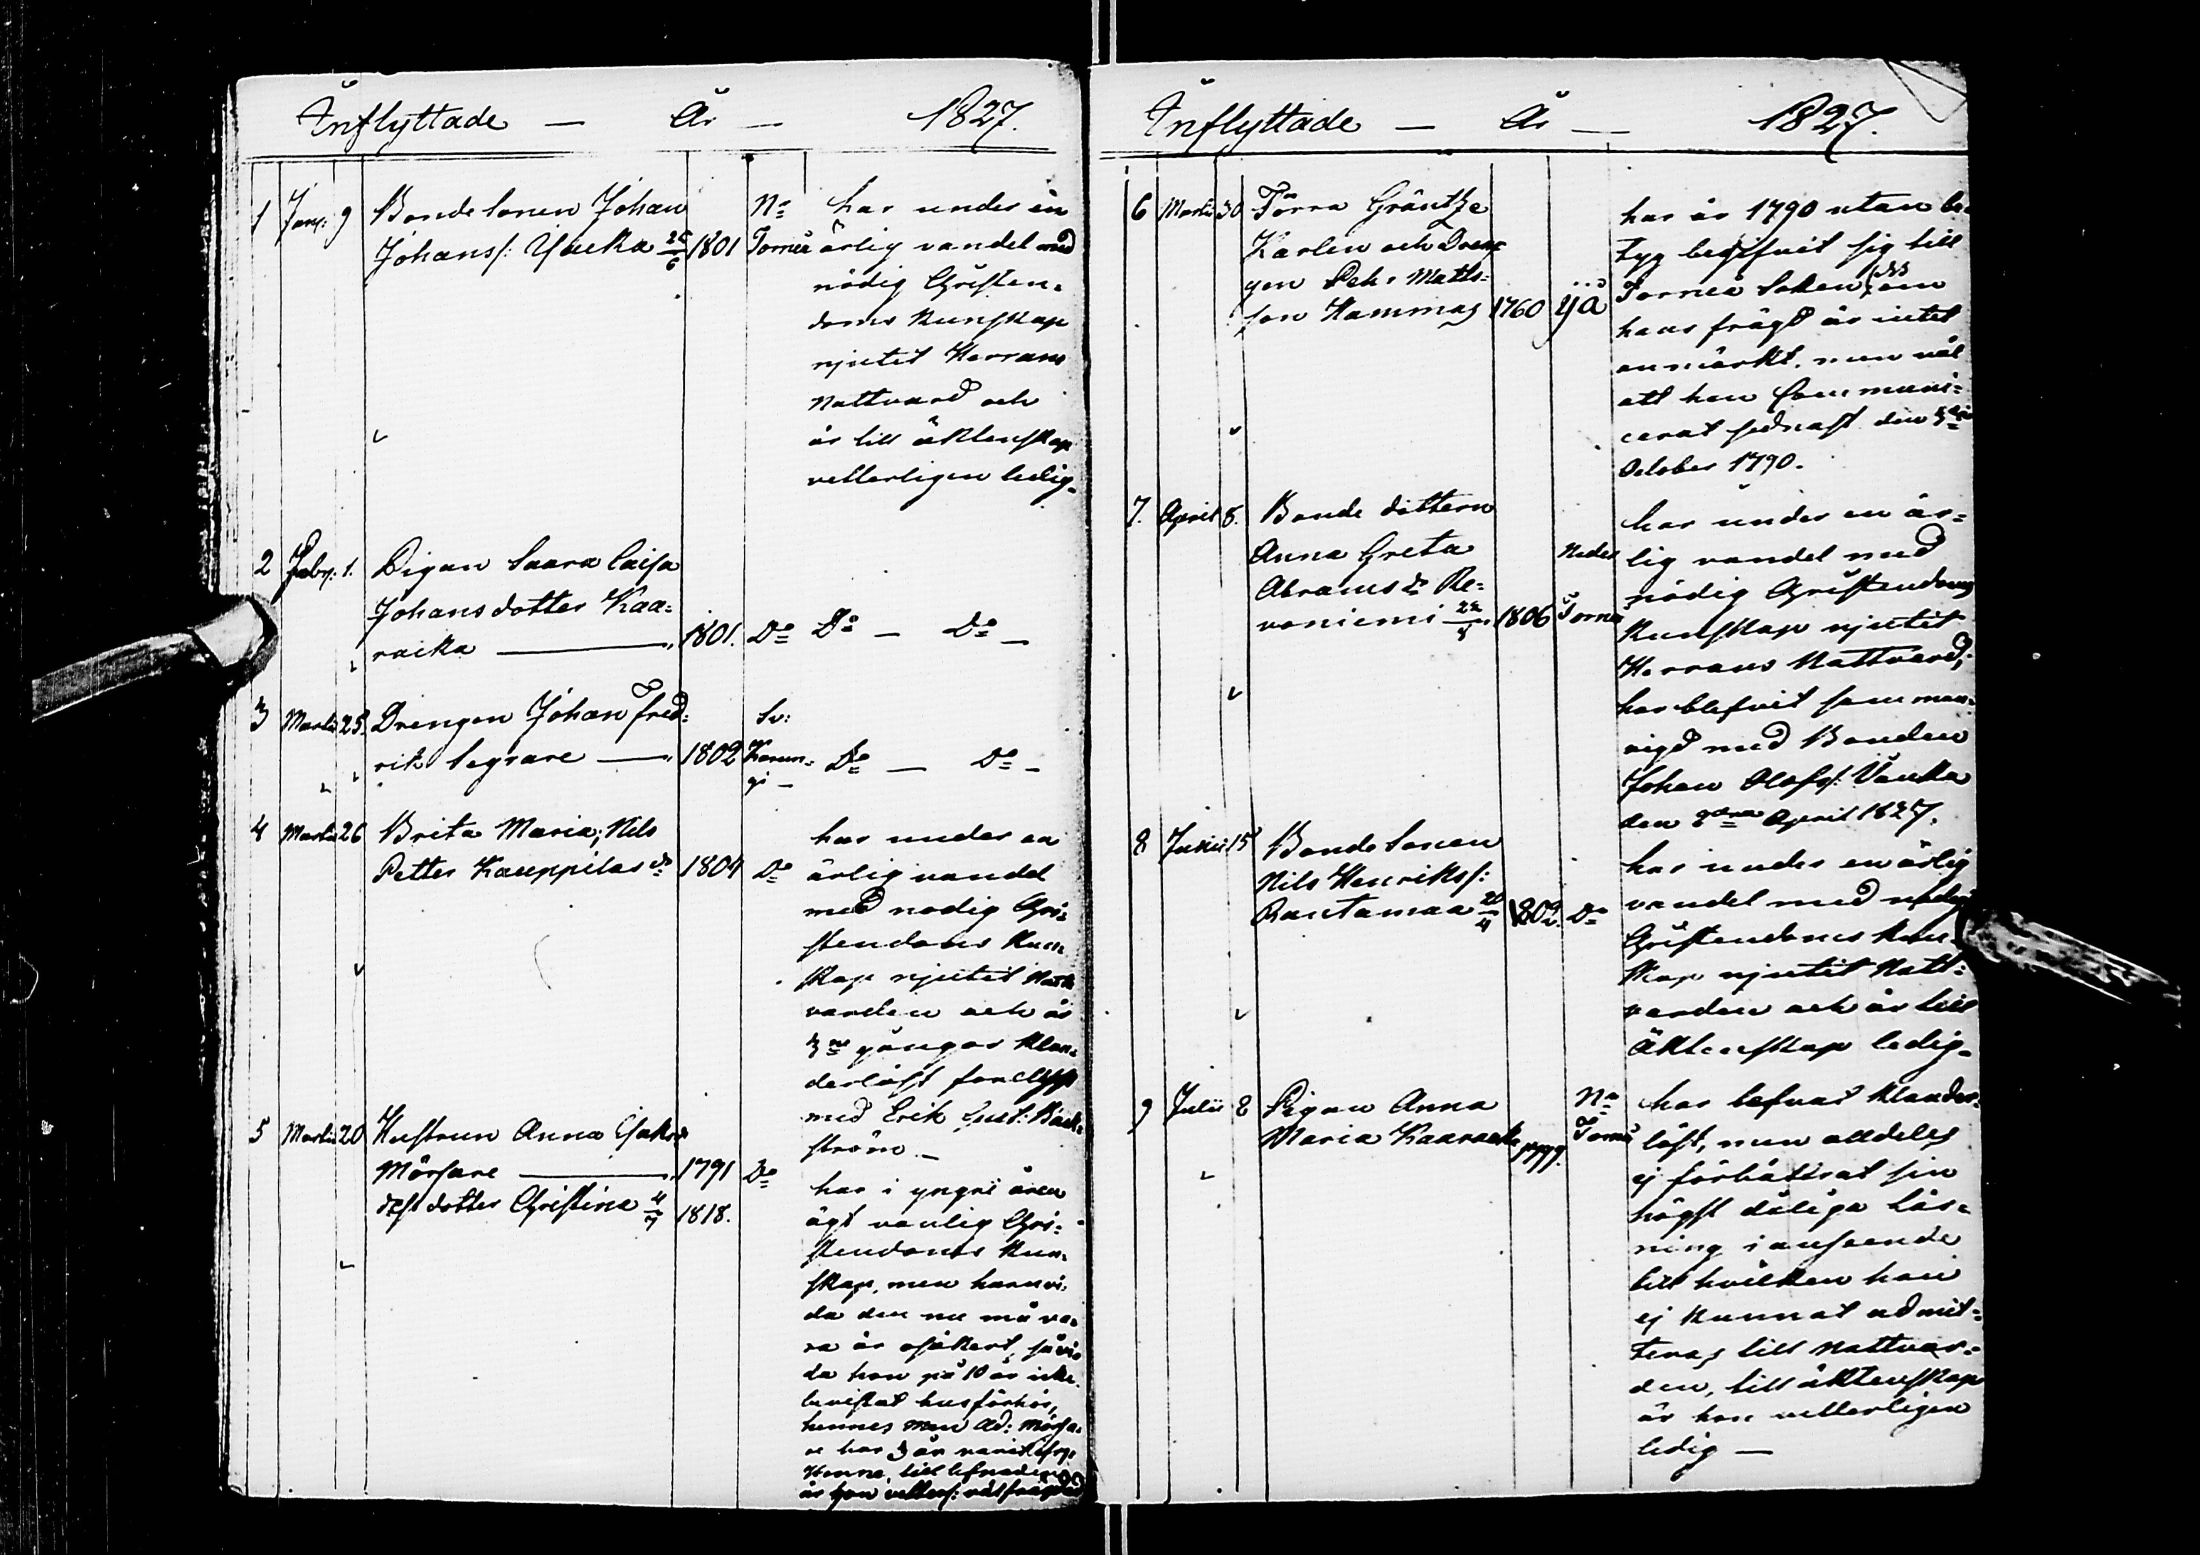 Inflyttade — År — 1827.
1 Jan: 9 Bonde Sonen Johan
Johans/: 26/6 1801 No Torneå
har under en
ärlig vandel med
nödig Christen-
doms Kunskap
njutit Herrans
Nattvard och
är till äktenskap
vetterligen ledig.
2 Feby: 1. Pigan Saara Caisa
Johansdotter Kaa-
racka — 1801. Do Do — Do —
3 Martii 25. Drengen Johan Fred-
rik Segrare — 1802 Sv: Karun-
gi — Do — Do —
4 Martii 26 Brita Maria, Nils
Petter Kauppilas dr 1804 Do
har under en
ärlig vandel
med nodig Chri-
stendoms Kun-
skap njutit Natt-
varden och är
3ne gångor klan-
derlöst forelyst
med Erik Gust: Bäck-
ström —
5 Martii 20 Hustrun Anna
Mörsare — 1791 Do
dess dotter Christina 4/7 1818.
har i yngre åren
ägt vanlig Chri-
stendoms Kun-
skap, men huruvi-
da den nu må va-
ra är osäkert, såvi-
da hon på 10 år icke
bevistat husförhör,
hennes man Ad: Mörsa-
re har 3 år varit ifrån
Henne, till lefnaden
är hon vetterl:
Inflyttade — År — 1827.
6 Martii 30 Förra Gräntze
Karlen och Dren-
gen Pehr Matts-
son Hammas 1760 Ijå
har år 1790 utan be-
tyg begifvit sig till
Torneå Soken, om
hans frägd är intet
anmärkt, men väl
att han Communi-
cerat sednast den 3die
October 1790.
7. April 8. Bonde dottern
Anna Greta
Abrams dr Re-
vaniemi 22/8 1806 Neder Torneå
har under en är-
lig vandel med
nödig Christendoms
kunskap njutit
Herrans Nattvard,
har blefvit samman-
vigd med Bonden
Johan Olofs/: Vänkka
den April 1827.
8 Junii 15 Bonde Sonen
Nils Henriks/:
Rautamaa 20/4 1802. Do
har under en ärlig
vandel med nödig
Christendoms Kun-
skap njutit Natt-
varden och är till
Äktenskap ledig.
9 Julii 8 Pigan Anna
Maria Kaaracka 1799. No Torneå
har lefvat klander-
löst, men alldeles
ej förbättrat sin
högst dåliga läs-
ning i anseende
till hvilken hon
ej kunnat admit-
teras till Nattvar-
den, till äktenskap
är hon vetterligen
ledig —